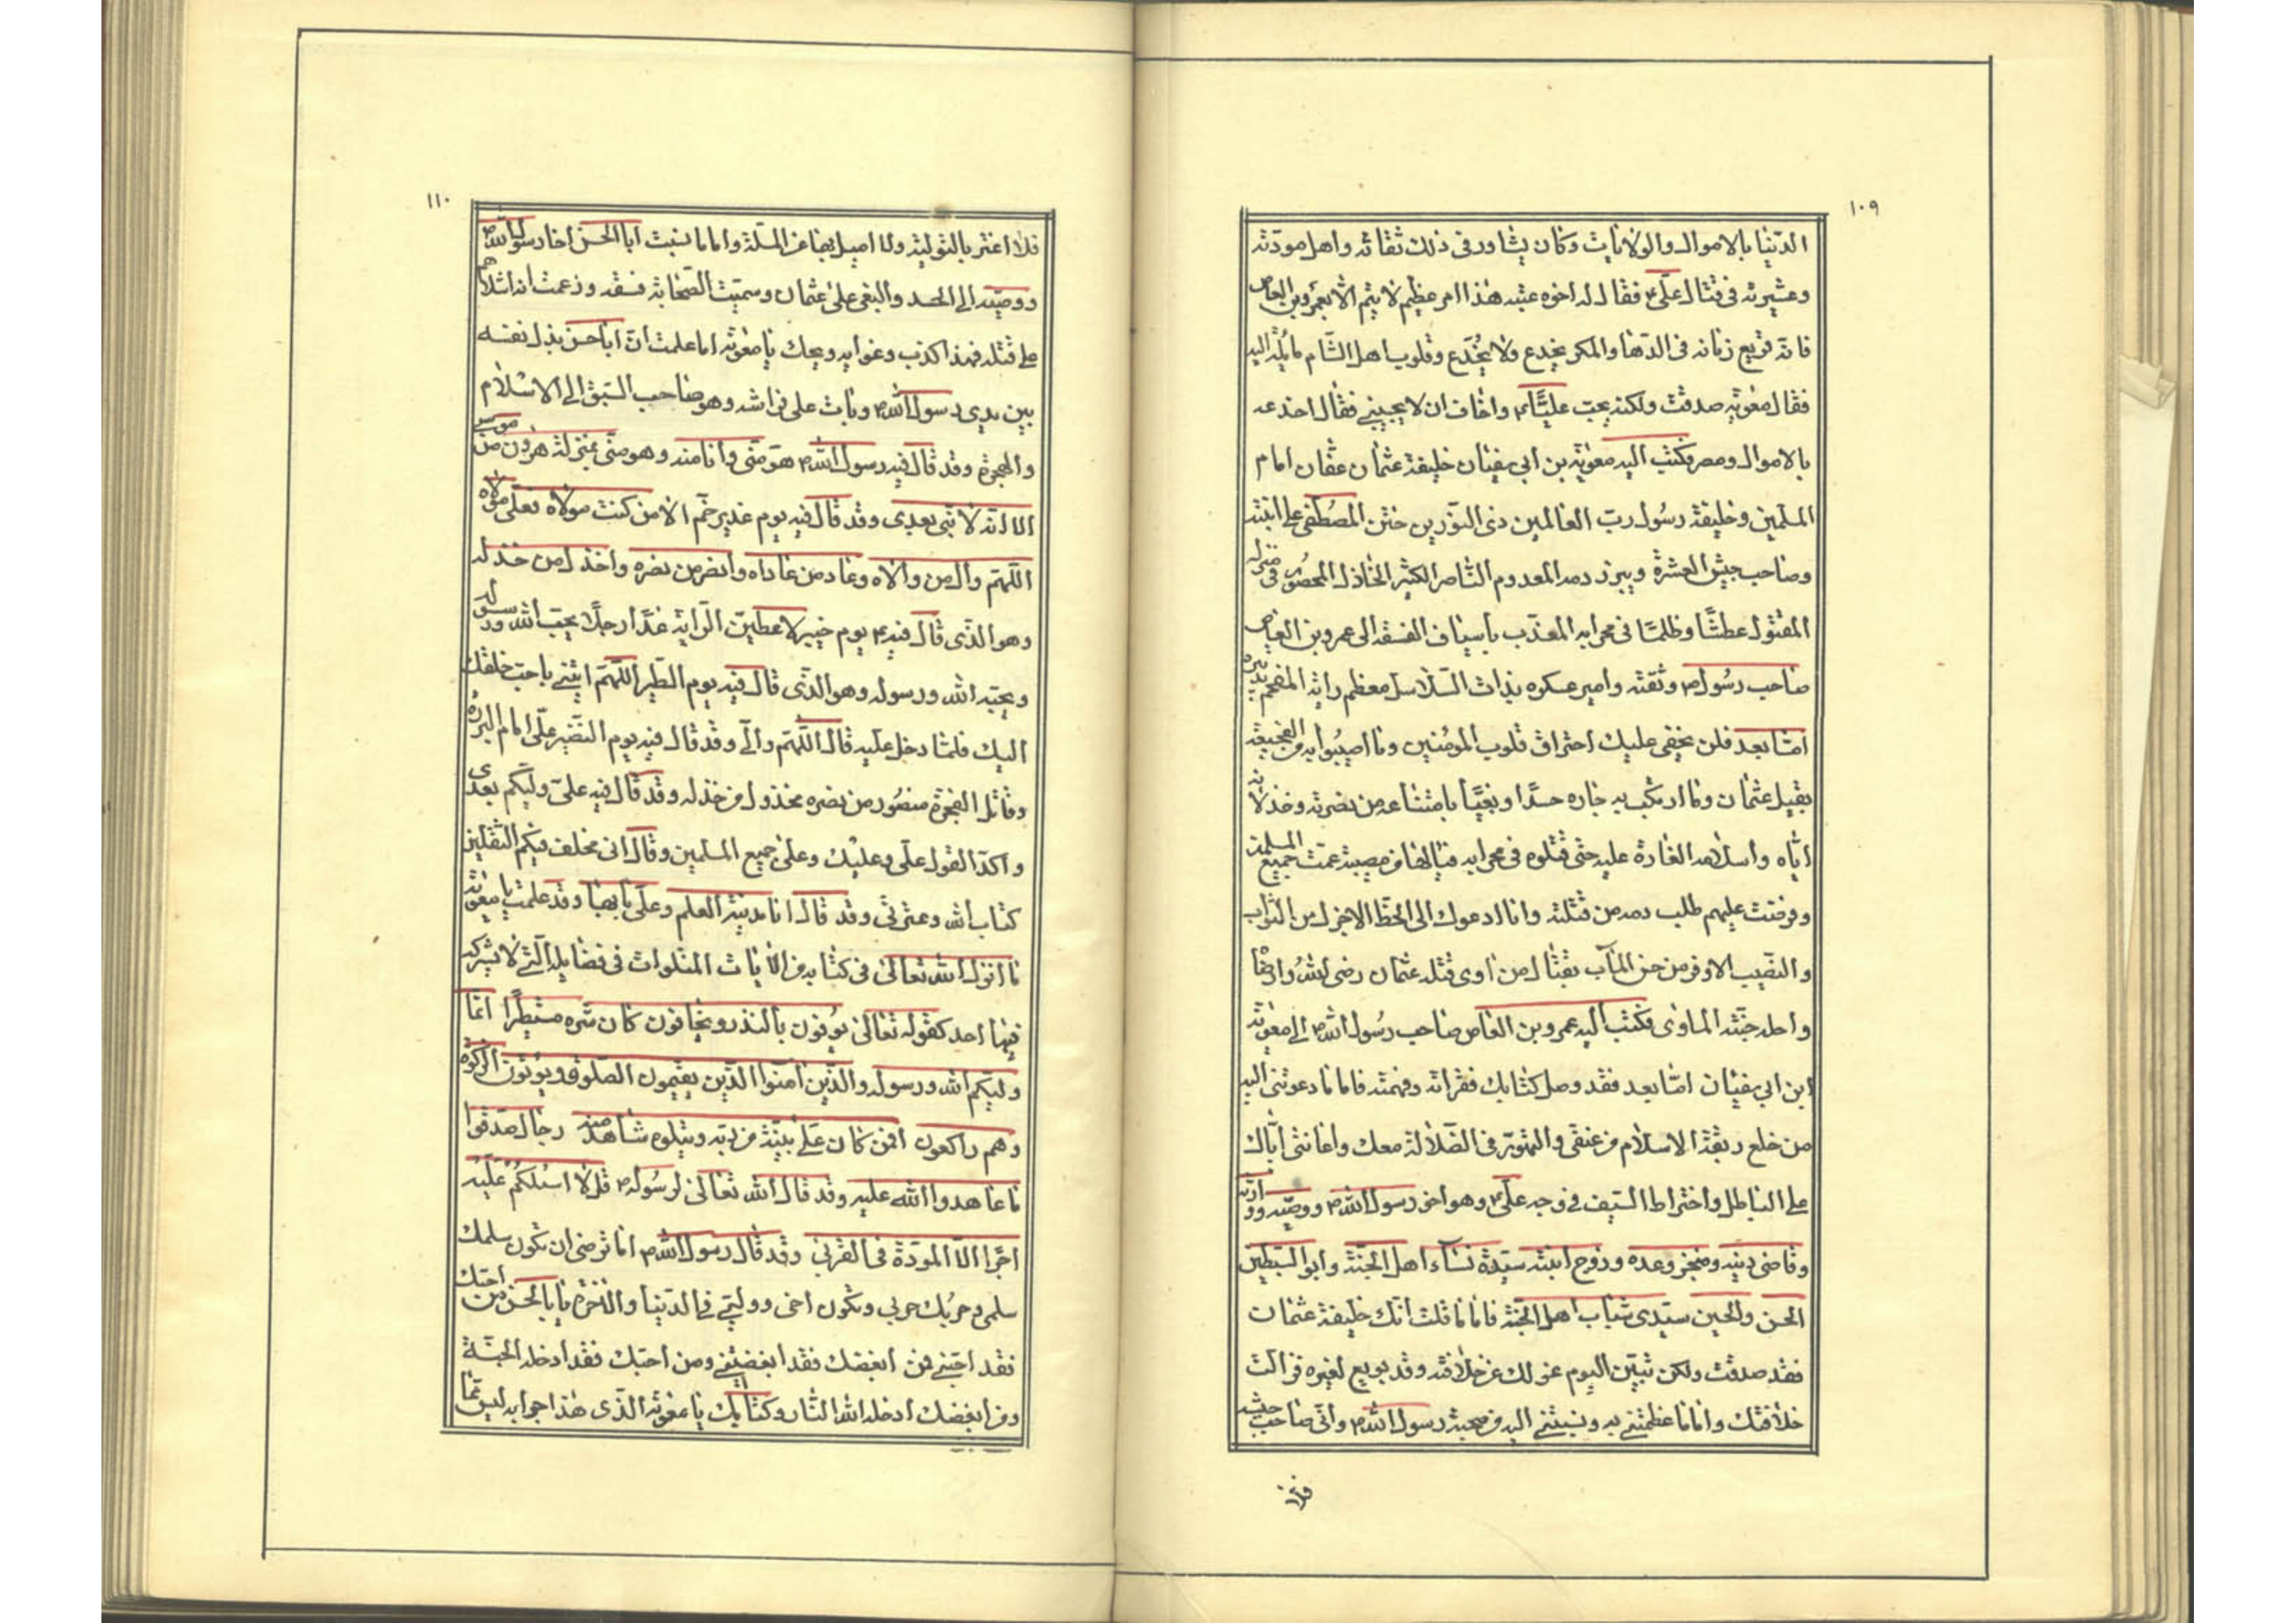 ١٠٩
الدنيا بالاموال والولايات وكان يشاور فى ذلك ثقاته واهل مودته
وعشيرته فى قتال على ع فقال له اخوه عتبه هذا امر عظيم لا يتم الا بعمرو بن العاص
فانه قريع زمانه فى الدهاء والمكر يخدع ولا يخدع وقلوب اهل الشام مايلة اليه
فقال معوية صدقت ولكنه يحب عليا ع واخاف ان لا يجيبنى فقال اخدعه
بالاموال ومصر فكتب اليه معوية بن ابى سفيان خليفة عثمان عفان امام
المسلمين وخليفة رسول رب العالمين ذى النورين ختن المصطفى على ابنتيه
وصاحب جيش العسرة وبير زمه المعدوم الناصر الكثير الخاذل المحصور فى منزله
المقتول عطشا وظلما فى محرابه المعذب باسياف الفسقه الى عمرو بن العاص
صاحب رسول ص وثقته وامير عسكره بذات السلاسل معظم رايه المفخم تدبيره
اما بعد فلن يخفى عليك احتراق قلوب المؤمنين وما اصيبوا به من الفجيعة
بقتل عثمان وما ارتكب به جاره حسدا وبغيا بامتناعه من نصرته وخذلانه
اياه واسلامه الغادة عليه حتى قتلوه فى محرابه فيا لها من مصيبة عمت جميع المسلمين
وفرضت عليهم طلب دمه من قتلته وانا ادعوك الى الحظ الاجزل من الثواب
والنصيب الاوفر من حسن المآب بقتال من آوى قتلة عثمان رضى الله وارضاه
واحله جنة الماوى فكتب اليه عمرو بن العاص صاحب رسول الله ص الى معوية
ابن ابى سفيان اما بعد فقد وصل كتابك فقراته وفهمته فاما ما دعوتنى اليه
من خلع ربقة الاسلام من عنقى والتهور فى الضلالة معك واعانتى اياك
على الباطل واختراط السيف فى وجه على ع وهو اخو رسول الله ص ووصيه ووارثه
وقاضى دينه ومنجز وعده وزوج ابنته سيدة نساء اهل الجنة وابو السبطين
الحسن والحسين سيدى شباب اهل الجنة فاما ما قلت انك خليفة عثمان
فقد صدقت ولكن تبين اليوم عزلك عن خلافته وقد بويع لغيره فزالت
خلافتك واما ما عظمتنى به ونسبتنى اليه من صحبة رسول الله ص وانى صاحب جيشه
فلا
١١٠
فلا اغتر بالتولية ولا اميل بها عن الملة واما ما نسبت ابا الحسن اخا رسول الله ص
ووصيه الى الحسد والبغى على عثمان وسميت الصحابة فسقه وزعمت انه اشلاهم
على قتله فهذا كذب وغوايه ويحك يا معوية اما علمت ان ابا حسن بذل نفسه
بين يدى رسول الله ص وبات على فراشه وهو صاحب السبق الى الاسلام
والهجرة وقد قال فيه رسول الله ص هو منى وانا منه وهو منى بمنزلة هرون من موسى
الا انه لا نبى بعدى وقد قال فيه يوم غدير خم الا من كنت مولاه فعلى مولاه
اللهم وال من والاه وعاد من عاداه وانصر من نصره واخذل من خذله
وهو الذى قال فيه ع يوم خيبر لاعطين الراية غدا رجلا يحب الله ورسوله
ويحبه الله ورسوله وهو الذى قال فيه يوم الطير اللهم ايتنى باحب خلقك
اليك فلما دخل عليه قال اللهم والى وقد قال فيه يوم النضير على امام البررة
وقاتل الفجرة منصور من نصره مخذول من خذله وقد قال فيه على وليكم بعدى
واكد القول على وعليك وعلى جميع المسلمين وقال انى مخلف فيكم الثقلين
كتاب الله وعترتى وقد قال انا مدينة العلم وعلى بابها وقد علمت يا معوية
ما انزل الله تعالى فى كتابه من الآيات المتلوات فى فضايله التى لا يشركه
فيها احد كقوله تعالى يوفون بالنذر ويخافون كان شره مستطيرا انما
وليكم الله ورسوله والذين آمنوا الذين يقيمون الصلوة ويؤتون الزكوة
وهم راكعون افمن كان على بينة من ربه ويتلوه شاهد منه رجال صدقوا
ما عاهدوا الله عليه وقد قال الله تعالى لرسوله ص قل لا اسئلكم عليه
اجرا الا المودة فى القربى وقد قال رسول الله ص اما ترضى ان تكون سلمك
سلمى وحربك حربى وتكون اخى ووليى فى الدنيا والاخرة يا ابا الحسن من احبك
فقد احبنى ومن ابغضك فقد ابغضنى ومن احبك فقد ادخله الجنة
ومن ابغضك ادخله الله النار وكتابك يا معوية الذى هذا جوابه ليس مما